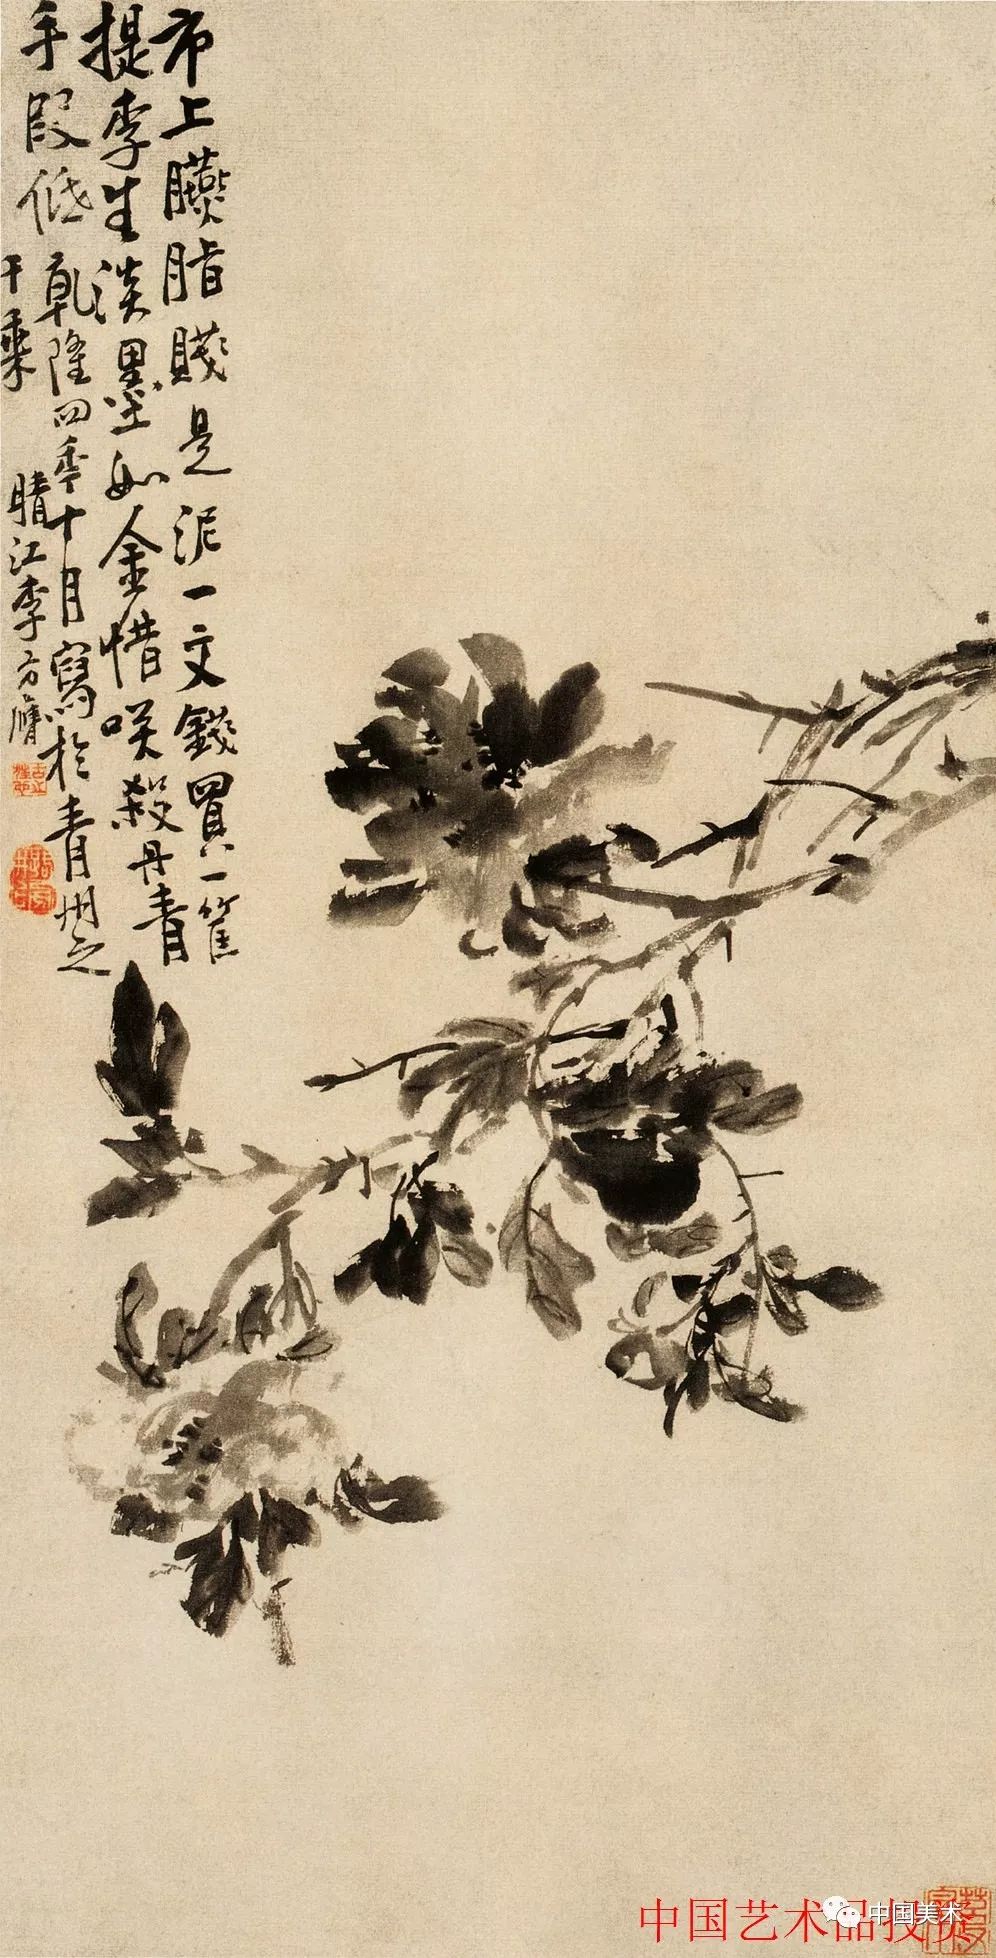 市上臙脂賤是泥一文錢買一筐
提李生淡墨如金惜咲殺丹青
手段低乾隆四秊十月寫於青州之
千乘 晴江李方膺
中国艺术品投资
中国美术